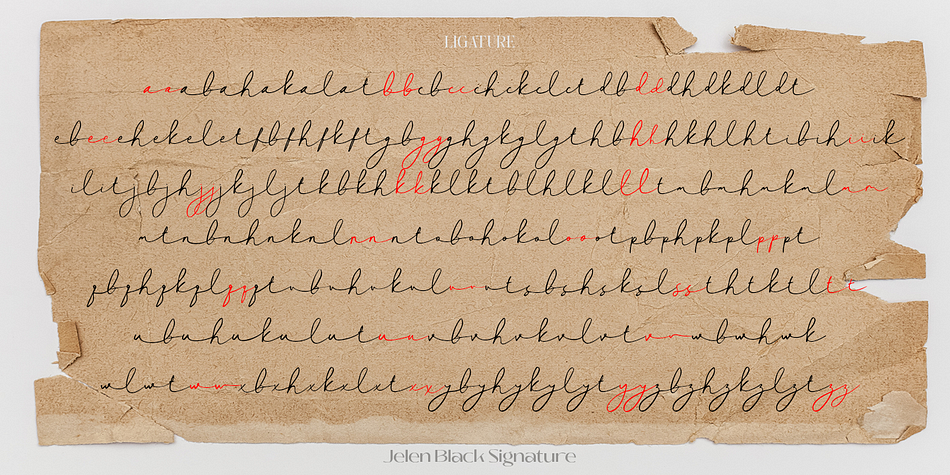 LIGATURE
aaabahakalatbbcbccchckclctdbdddhdkdldt
ebeeehekeletfbfhfkftgbggghgkglgthbhhhkhlhtibihiiik
ilitjbjhjjjkjljtkbkhkkklktlblhlkllltmbmhmkmlmm
mtnbnhnknlnnntobohokoloootpbphpkplpppt
qbqhqkqlqqqtrbrhrkrlrrrtsbshskslssthtktltt
ubuhukulutuuvbvhvkvlvtvvwbwhwk
wlwtwwxbxhxkxlxtxxybyhykylytyyzbzhzkzlztzz
Jelen Black Signature